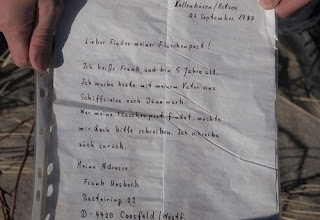 Kellenhusen/Ostsee
07. September 1987
Lieber Finder meiner Flaschenpost!
Ich heiße Frank und bin 5 Jahre alt.
Ich mache heute mit meinem Vater eine
Schiffsreise nach Dänemark.
Wer meine Flaschenpost findet, möchte
mir doch bitte schreiben. Ich schreibe
auch zurück.
Meine Adresse:
Frank Uesbeck
Basteiring 22
D-4420 Coesfeld/Westf.